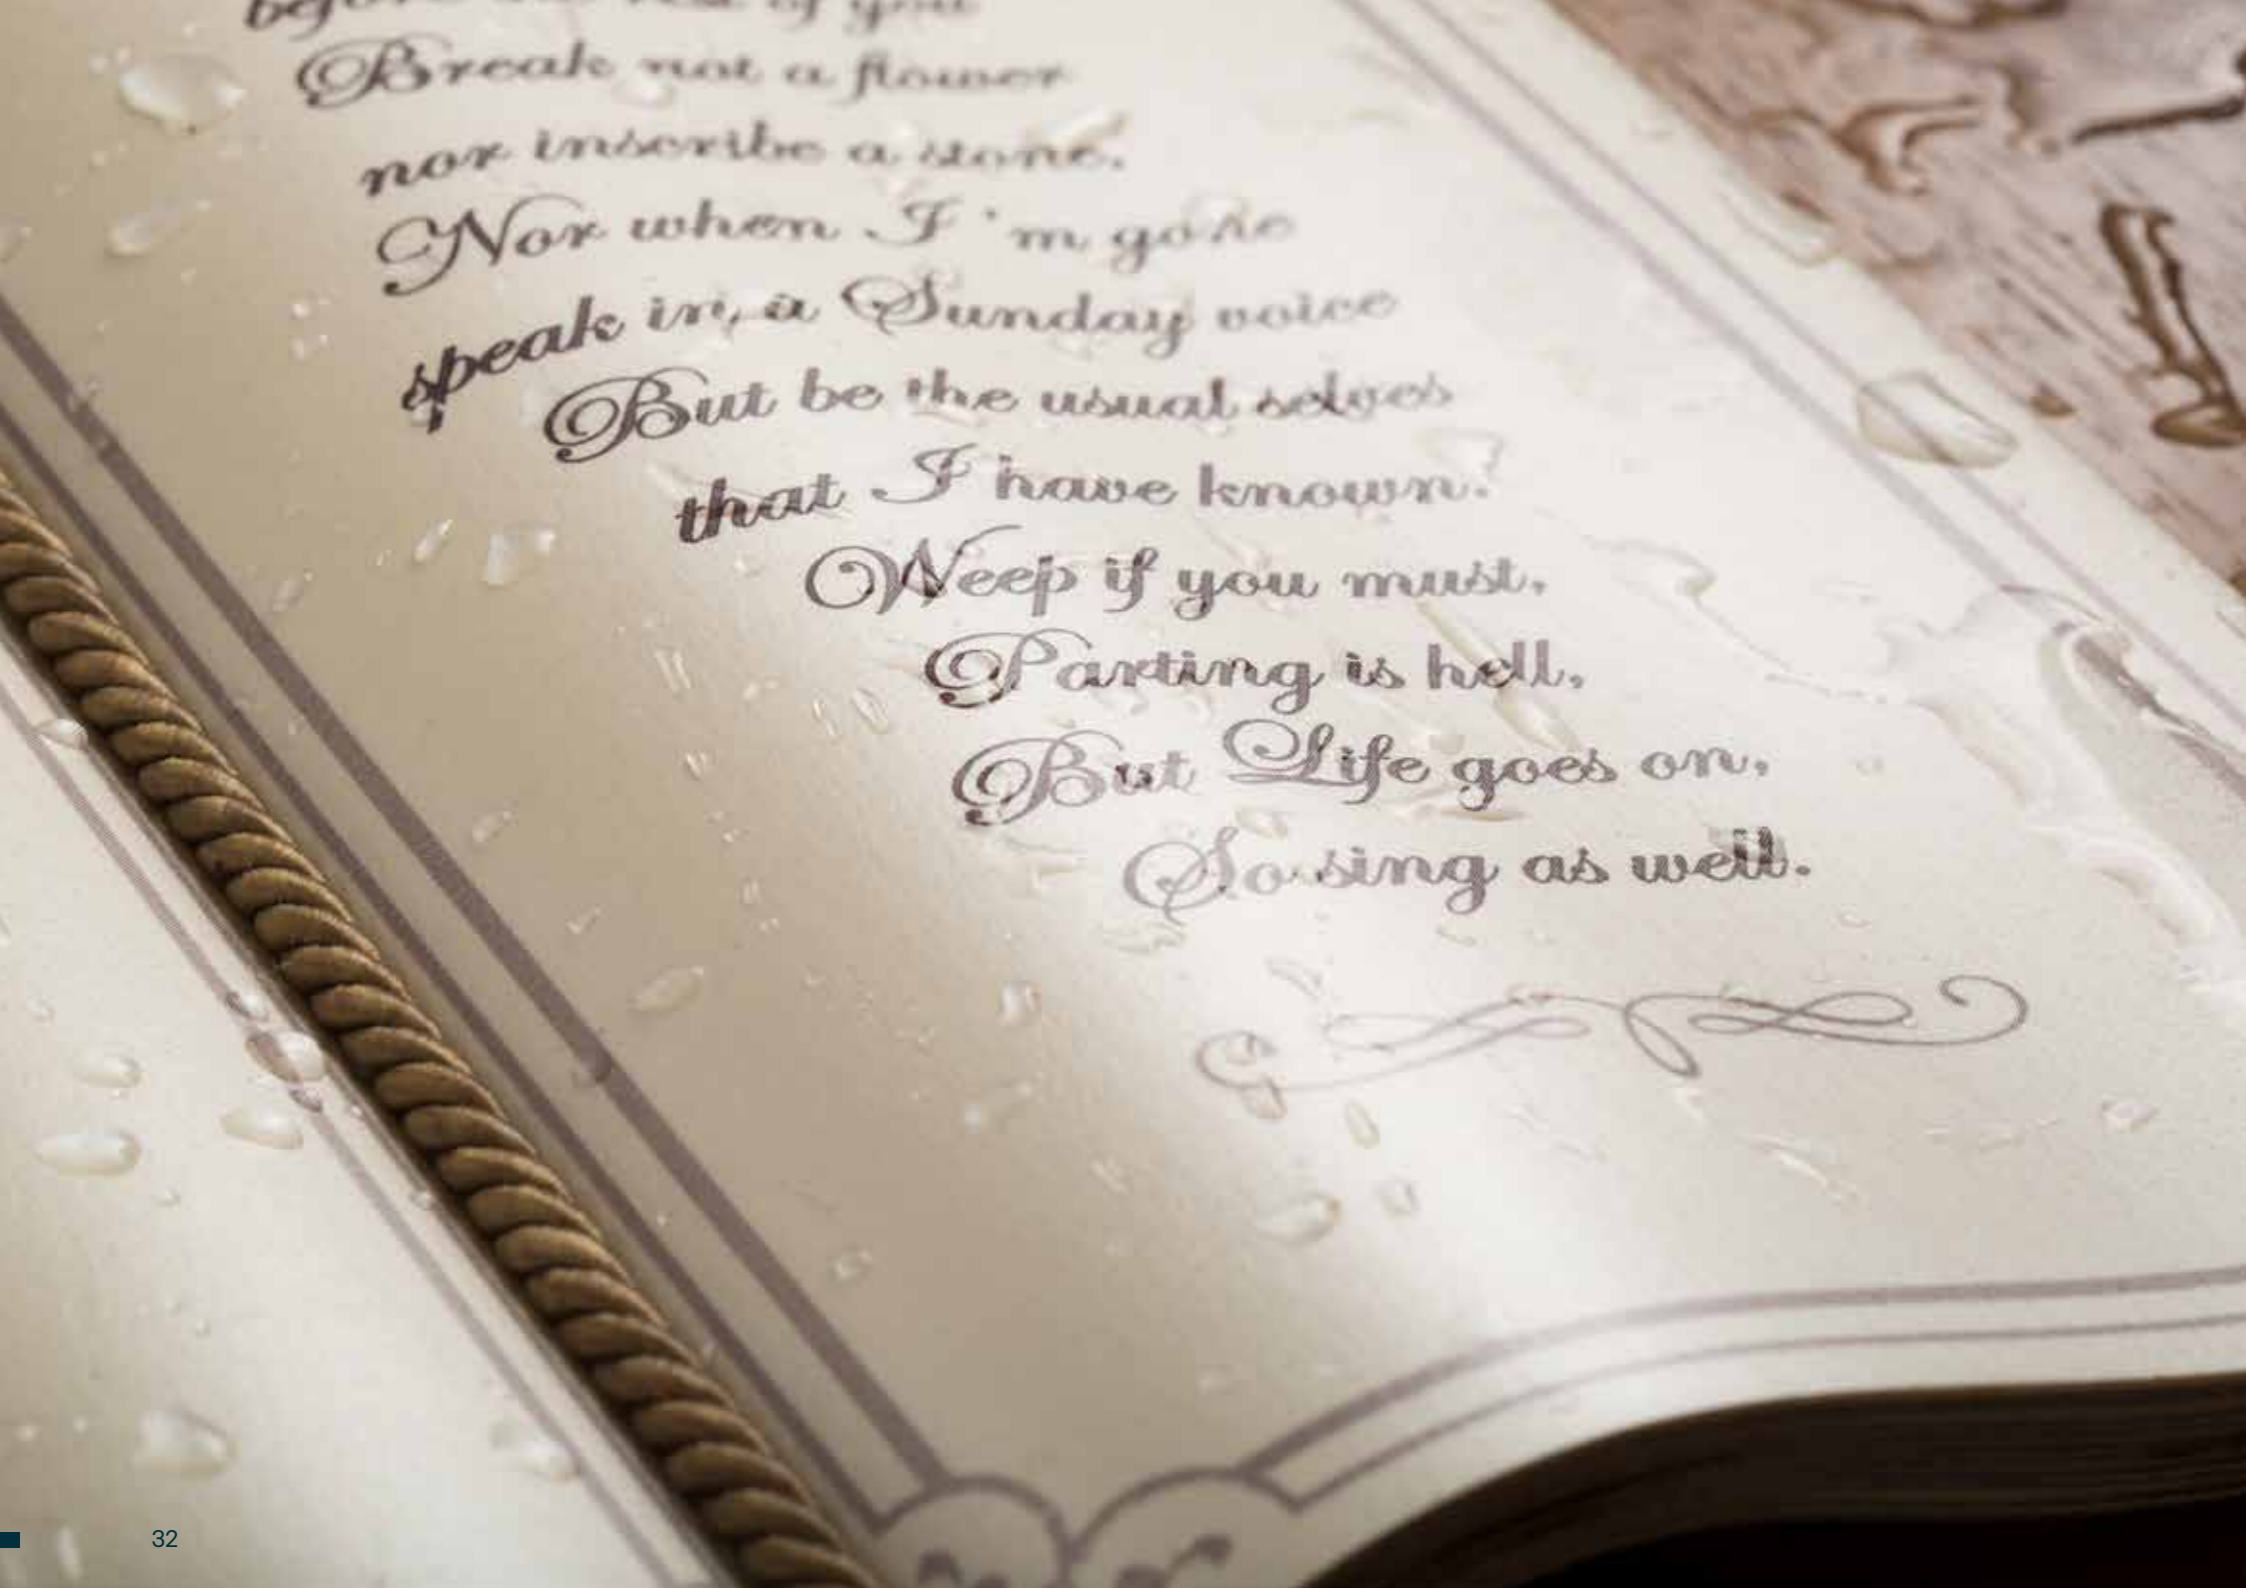 before the rest of you
Break not a flower
nor inscribe a stone.
Nor when I'm gone
speak in a Sunday voice
But be the usual selves
that I have known.
Weep if you must,
Parting is hell,
But Life goes on,
So sing as well.
32